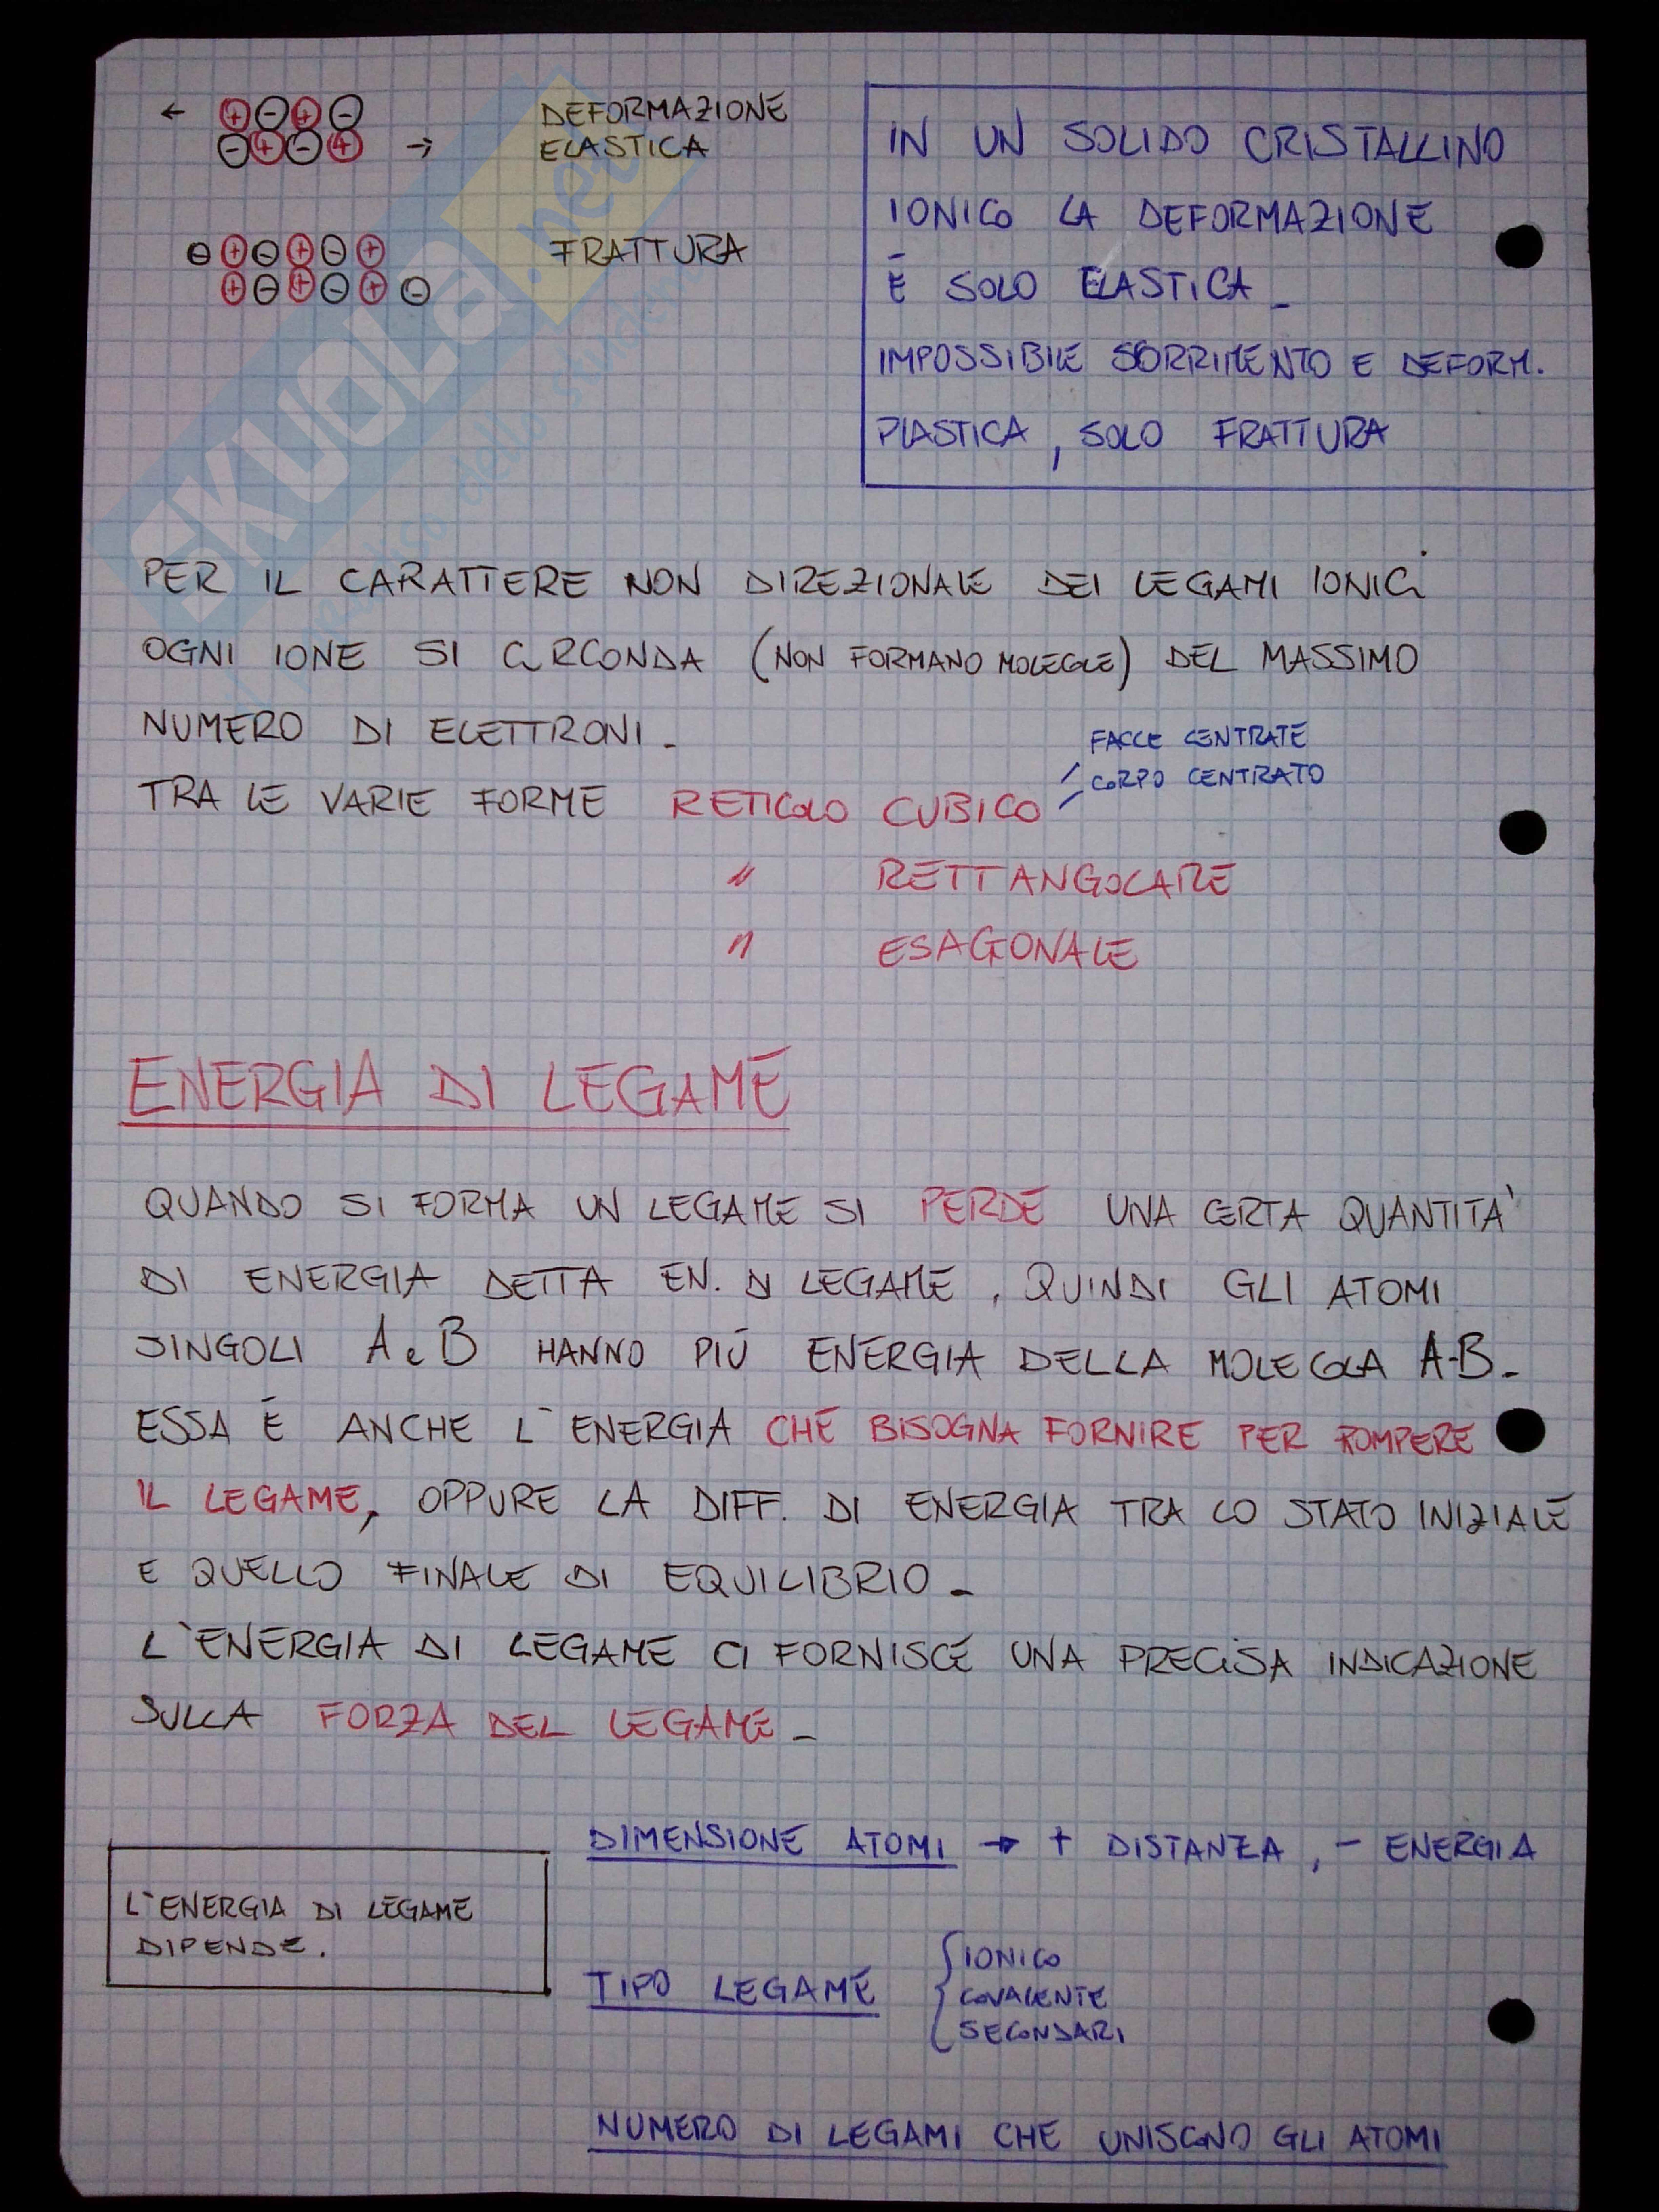 ← + - + - DEFORMAZIONE
- + - + → ELASTICA
- + - + - + FRATTURA
+ - + - + -
IN UN SOLIDO CRISTALLINO
IONICO LA DEFORMAZIONE
È SOLO ELASTICA _
IMPOSSIBILE SCORRIMENTO E DEFORM.
PLASTICA, SOLO FRATTURA
SKUOLA.net
PER IL CARATTERE NON DIREZIONALE DEI LEGAMI IONICI
OGNI IONE SI CIRCONDA (NON FORMANO MOLECOLE) DEL MASSIMO
NUMERO DI ELETTRONI _
FACCE CENTRATE
CORPO CENTRATO
TRA LE VARIE FORME RETICOLO CUBICO
" RETTANGOLARE
" ESAGONALE
ENERGIA DI LEGAME
QUANDO SI FORMA UN LEGAME SI PERDE UNA CERTA QUANTITA'
DI ENERGIA DETTA EN. DI LEGAME, QUINDI GLI ATOMI
SINGOLI A e B HANNO PIÙ ENERGIA DELLA MOLECOLA A-B _
ESSA È ANCHE L'ENERGIA CHE BISOGNA FORNIRE PER ROMPERE
IL LEGAME, OPPURE LA DIFF. DI ENERGIA TRA LO STATO INIZIALE
E QUELLO FINALE DI EQUILIBRIO _
L'ENERGIA DI LEGAME CI FORNISCE UNA PRECISA INDICAZIONE
SULLA FORZA DEL LEGAME _
DIMENSIONE ATOMI → + DISTANZA, - ENERGIA
L'ENERGIA DI LEGAME
DIPENDE.
TIPO LEGAME { IONICO
COVALENTE
SECONDARI
NUMERO DI LEGAMI CHE UNISCONO GLI ATOMI